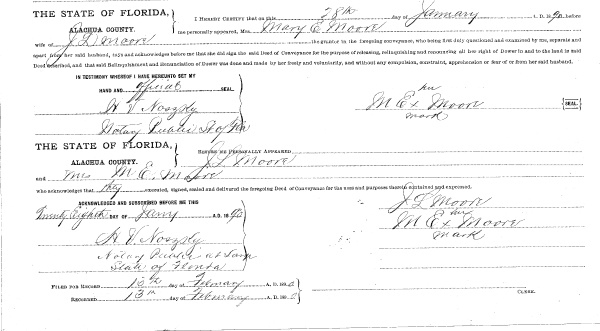 THE STATE OF FLORIDA,
ALACHUA COUNTY.
I HEREBY CERTIFY that on this 28th day of January A. D. 18 before
me personally appeared, Mrs. Mary E. Moore
wife of J L Moore the grantor in the foregoing conveyance, who being first duly questioned and examined by me, separate and
apart from her said husband, says and acknowledges before me that she did sign the said Deed of Conveyance for the purpose of releasing, relinquishing and renouncing all her right of Dower in and to the land in said
Deed described, and that said Relinquishment and Renunciation of Dower was done and made by her freely and voluntarily, and without any compulsion, constraint, apprehension or fear of or from her said husband.
IN TESTIMONY WHEREOF I HAVE HEREUNTO SET MY
HAND AND official SEAL.
Notary Public St of Fla
her
M E x Moore
mark
SEAL.
THE STATE OF FLORIDA,
ALACHUA COUNTY.
BEFORE ME PERSONALLY APPEARED J L Moore
and Mrs M E Moore
who acknowledge that they executed, signed, sealed and delivered the foregoing Deed of Conveyance for the uses and purposes therein contained and expressed.
ACKNOWLEDGED AND SUBSCRIBED BEFORE ME THIS
Twenty Eighth DAY OF A. D. 18
Notary Public at Large
State of Florida
J L Moore
her
M E x Moore
mark
FILED FOR RECORD 13th day of February A. D. 18
RECORDED 13th day of February A. D. 18
CLERK.